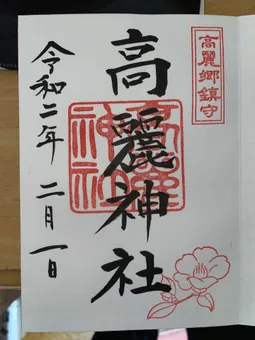 高麗郷鎮守
高麗神社
高麗神社
令和二年 二月一日